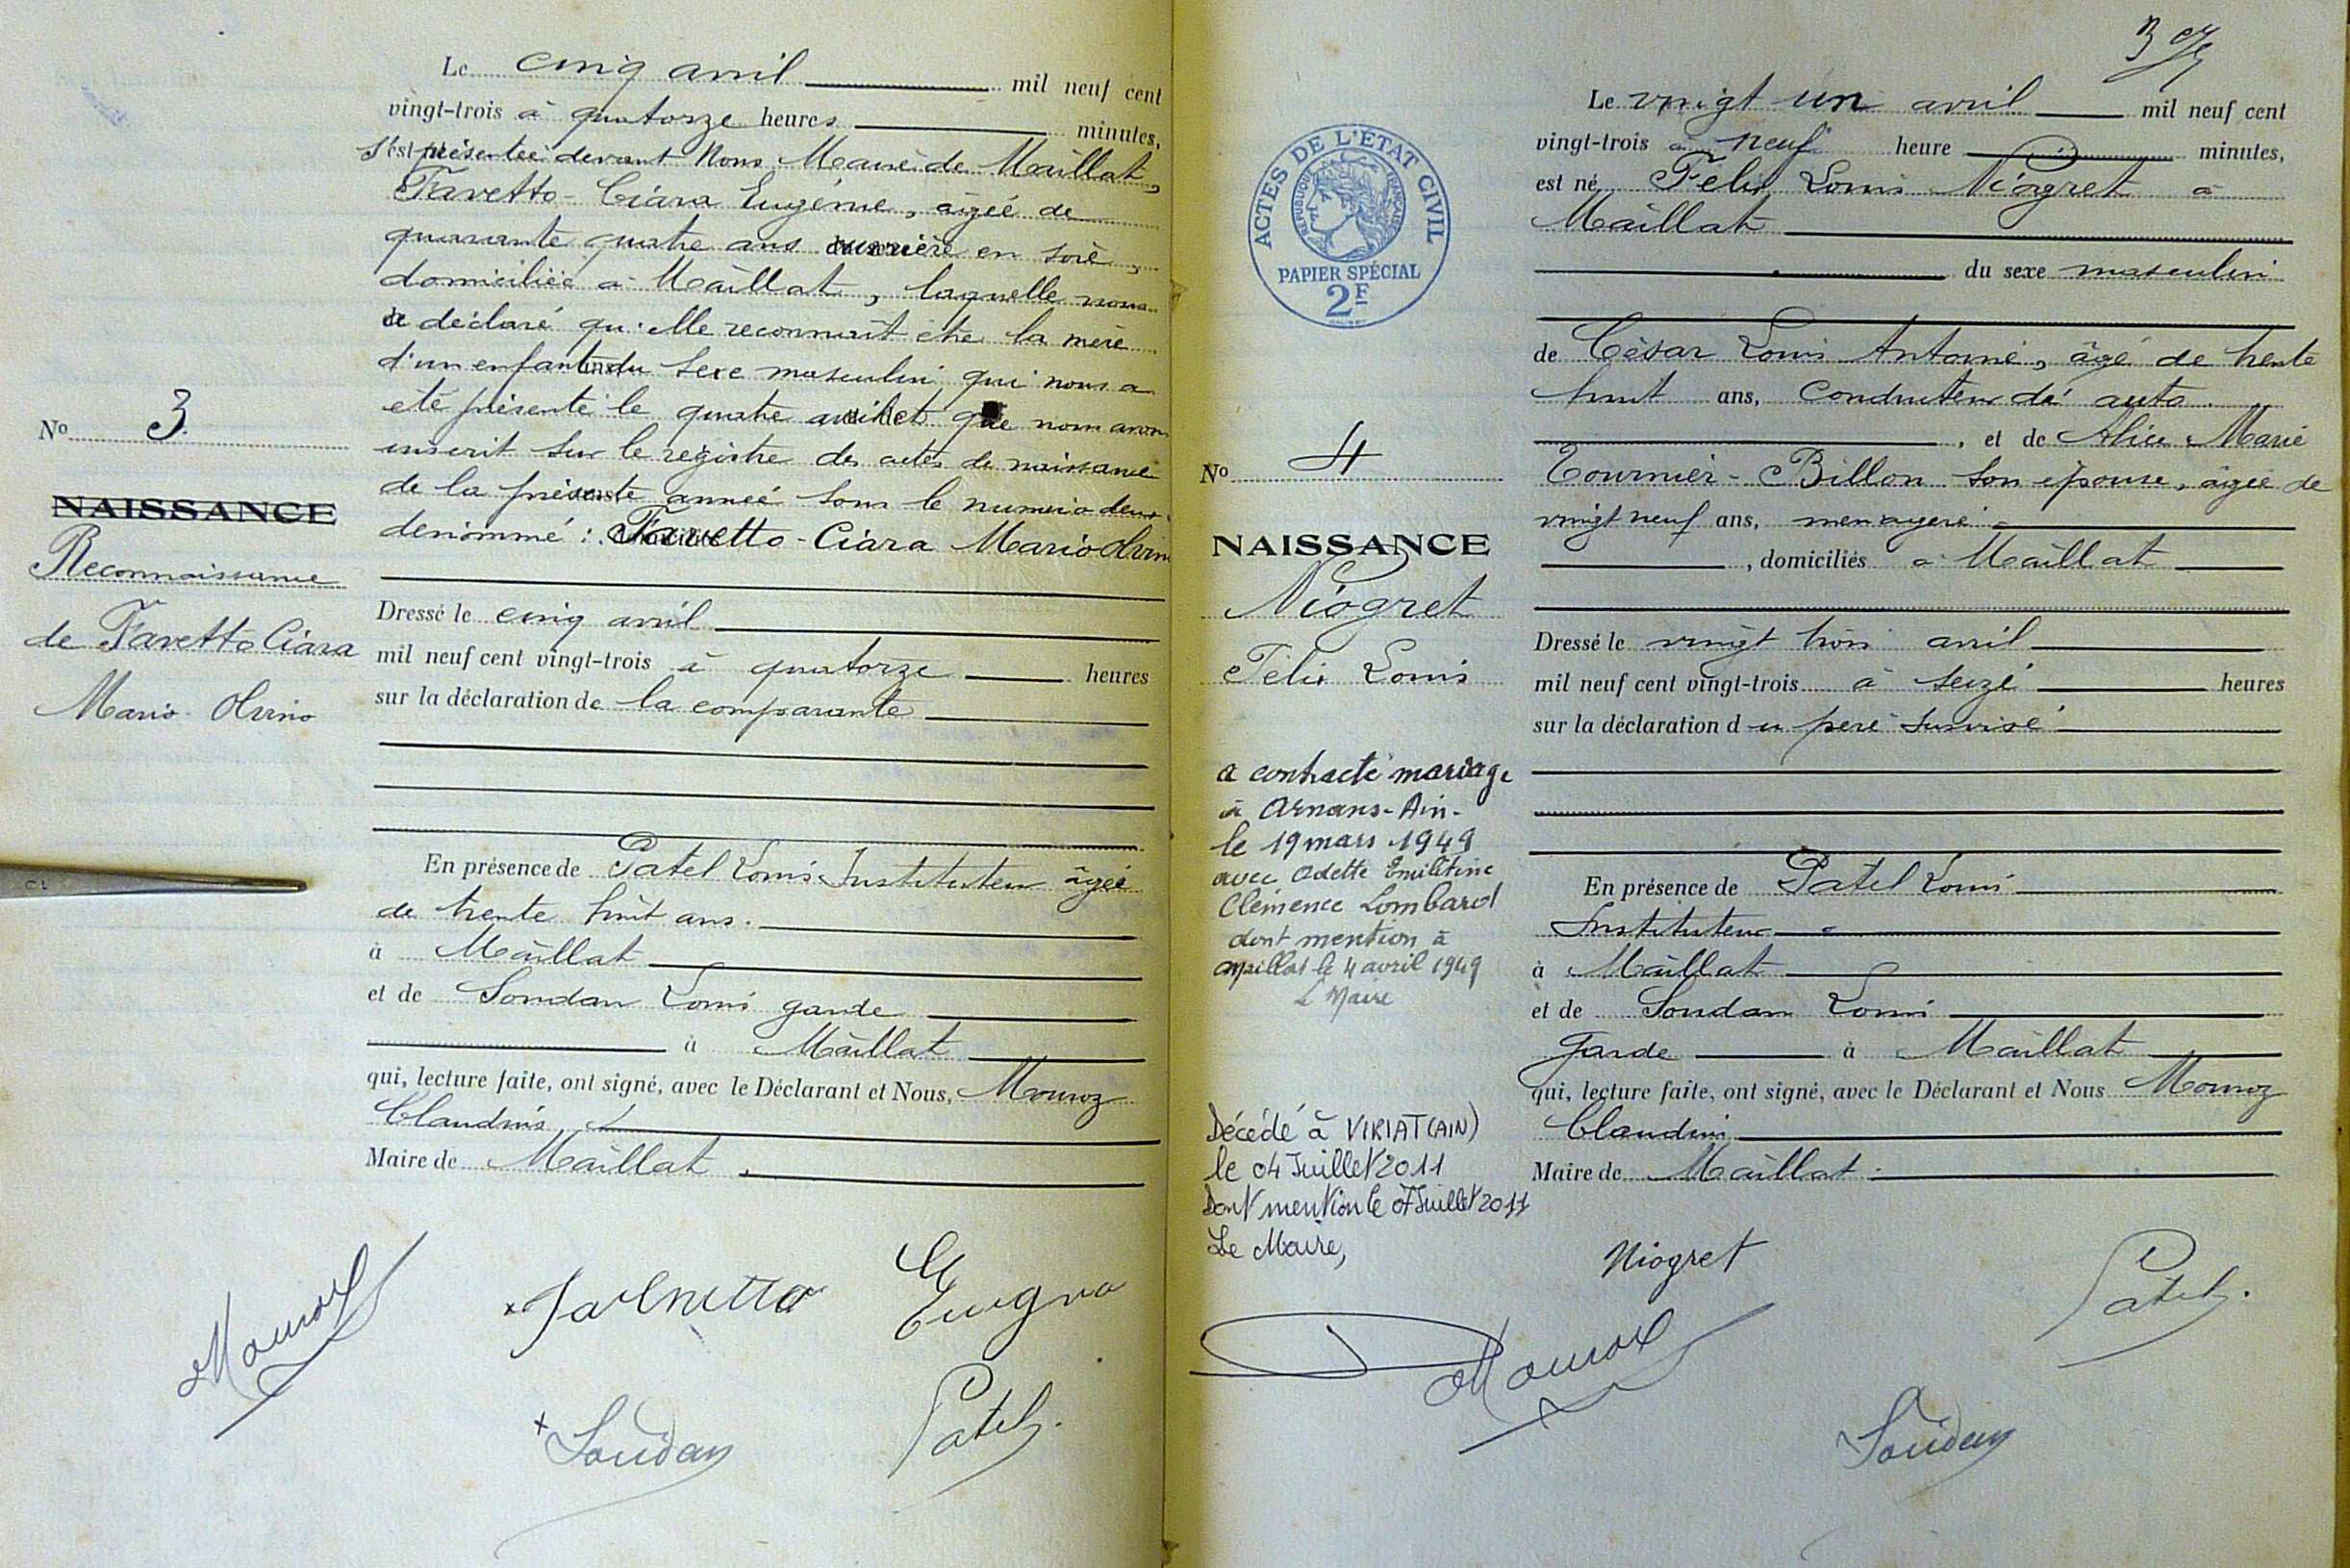 Le cinq avril mil neuf cent
vingt-trois à quatorze heures minutes,
s'est présentée devant Nous Maire de Maillat,
Favetto-Ciara Eugénie, âgée de
quarante quatre ans ouvrière en soie,
domiciliée à Maillat, laquelle nous
a déclaré qu'elle reconnait etre la mère
d'un enfant du sexe masculin qui nous a
été présenté le quatre que nous avons
inscrit sur le registre des actes de naissance
de la présente année sous le numéro deux
dénommé : Favetto-Ciara Mario Olvino
N° 3
NAISSANCE
Reconnaissance
de Favetto Ciara
Mario Olvino
Dressé le cinq avril
mil neuf cent vingt-trois à quatorze heures
sur la déclaration de la comparante
En présence de Patel Louis Instituteur âgée
de trente huit ans.
à Maillat
et de Soudan Louis garde
à Maillat
qui, lecture faite, ont signé, avec le Déclarant et Nous, Mouroz
Claudius
Maire de Maillat
Mouroz
Soudan
Patel.
ACTES DE L'ÉTAT CIVIL
RÉPUBLIQUE FRANÇAISE
PAPIER SPÉCIAL
2F
3
Le vingt un avril mil neuf cent
vingt-trois à neuf heure minutes,
est né Félix Louis Niogret à
Maillat
du sexe masculin
de César Louis Antoine, âgé de trente
huit ans, conducteur de auto
, et de Alice Marie
Tournier-Billon son épouse, âgée de
vingt neuf ans, menagere
, domiciliés à Maillat
N° 4
NAISSANCE
Niogret
Félix Louis
Dressé le vingt trois avril
mil neuf cent vingt-trois à seize heures
sur la déclaration du père susvisé
a contracté mariage
à Arnans-Ain-
le 19 mars 1949
avec Odette
Clémence Lombard
dont mention à
Maillat le 4 avril 1949
Le Maire
En présence de Patel Louis
Instituteur
à Maillat
et de Soudan Louis
garde à Maillat
qui, lecture faite, ont signé, avec le Déclarant et Nous Mouroz
Claudius
Maire de Maillat
Décédé à VIRIAT (AIN)
le 04 Juillet 2011
Dont mention le 07 Juillet 2011
Le Maire,
Niogret
Patel.
Mouroz
Soudan